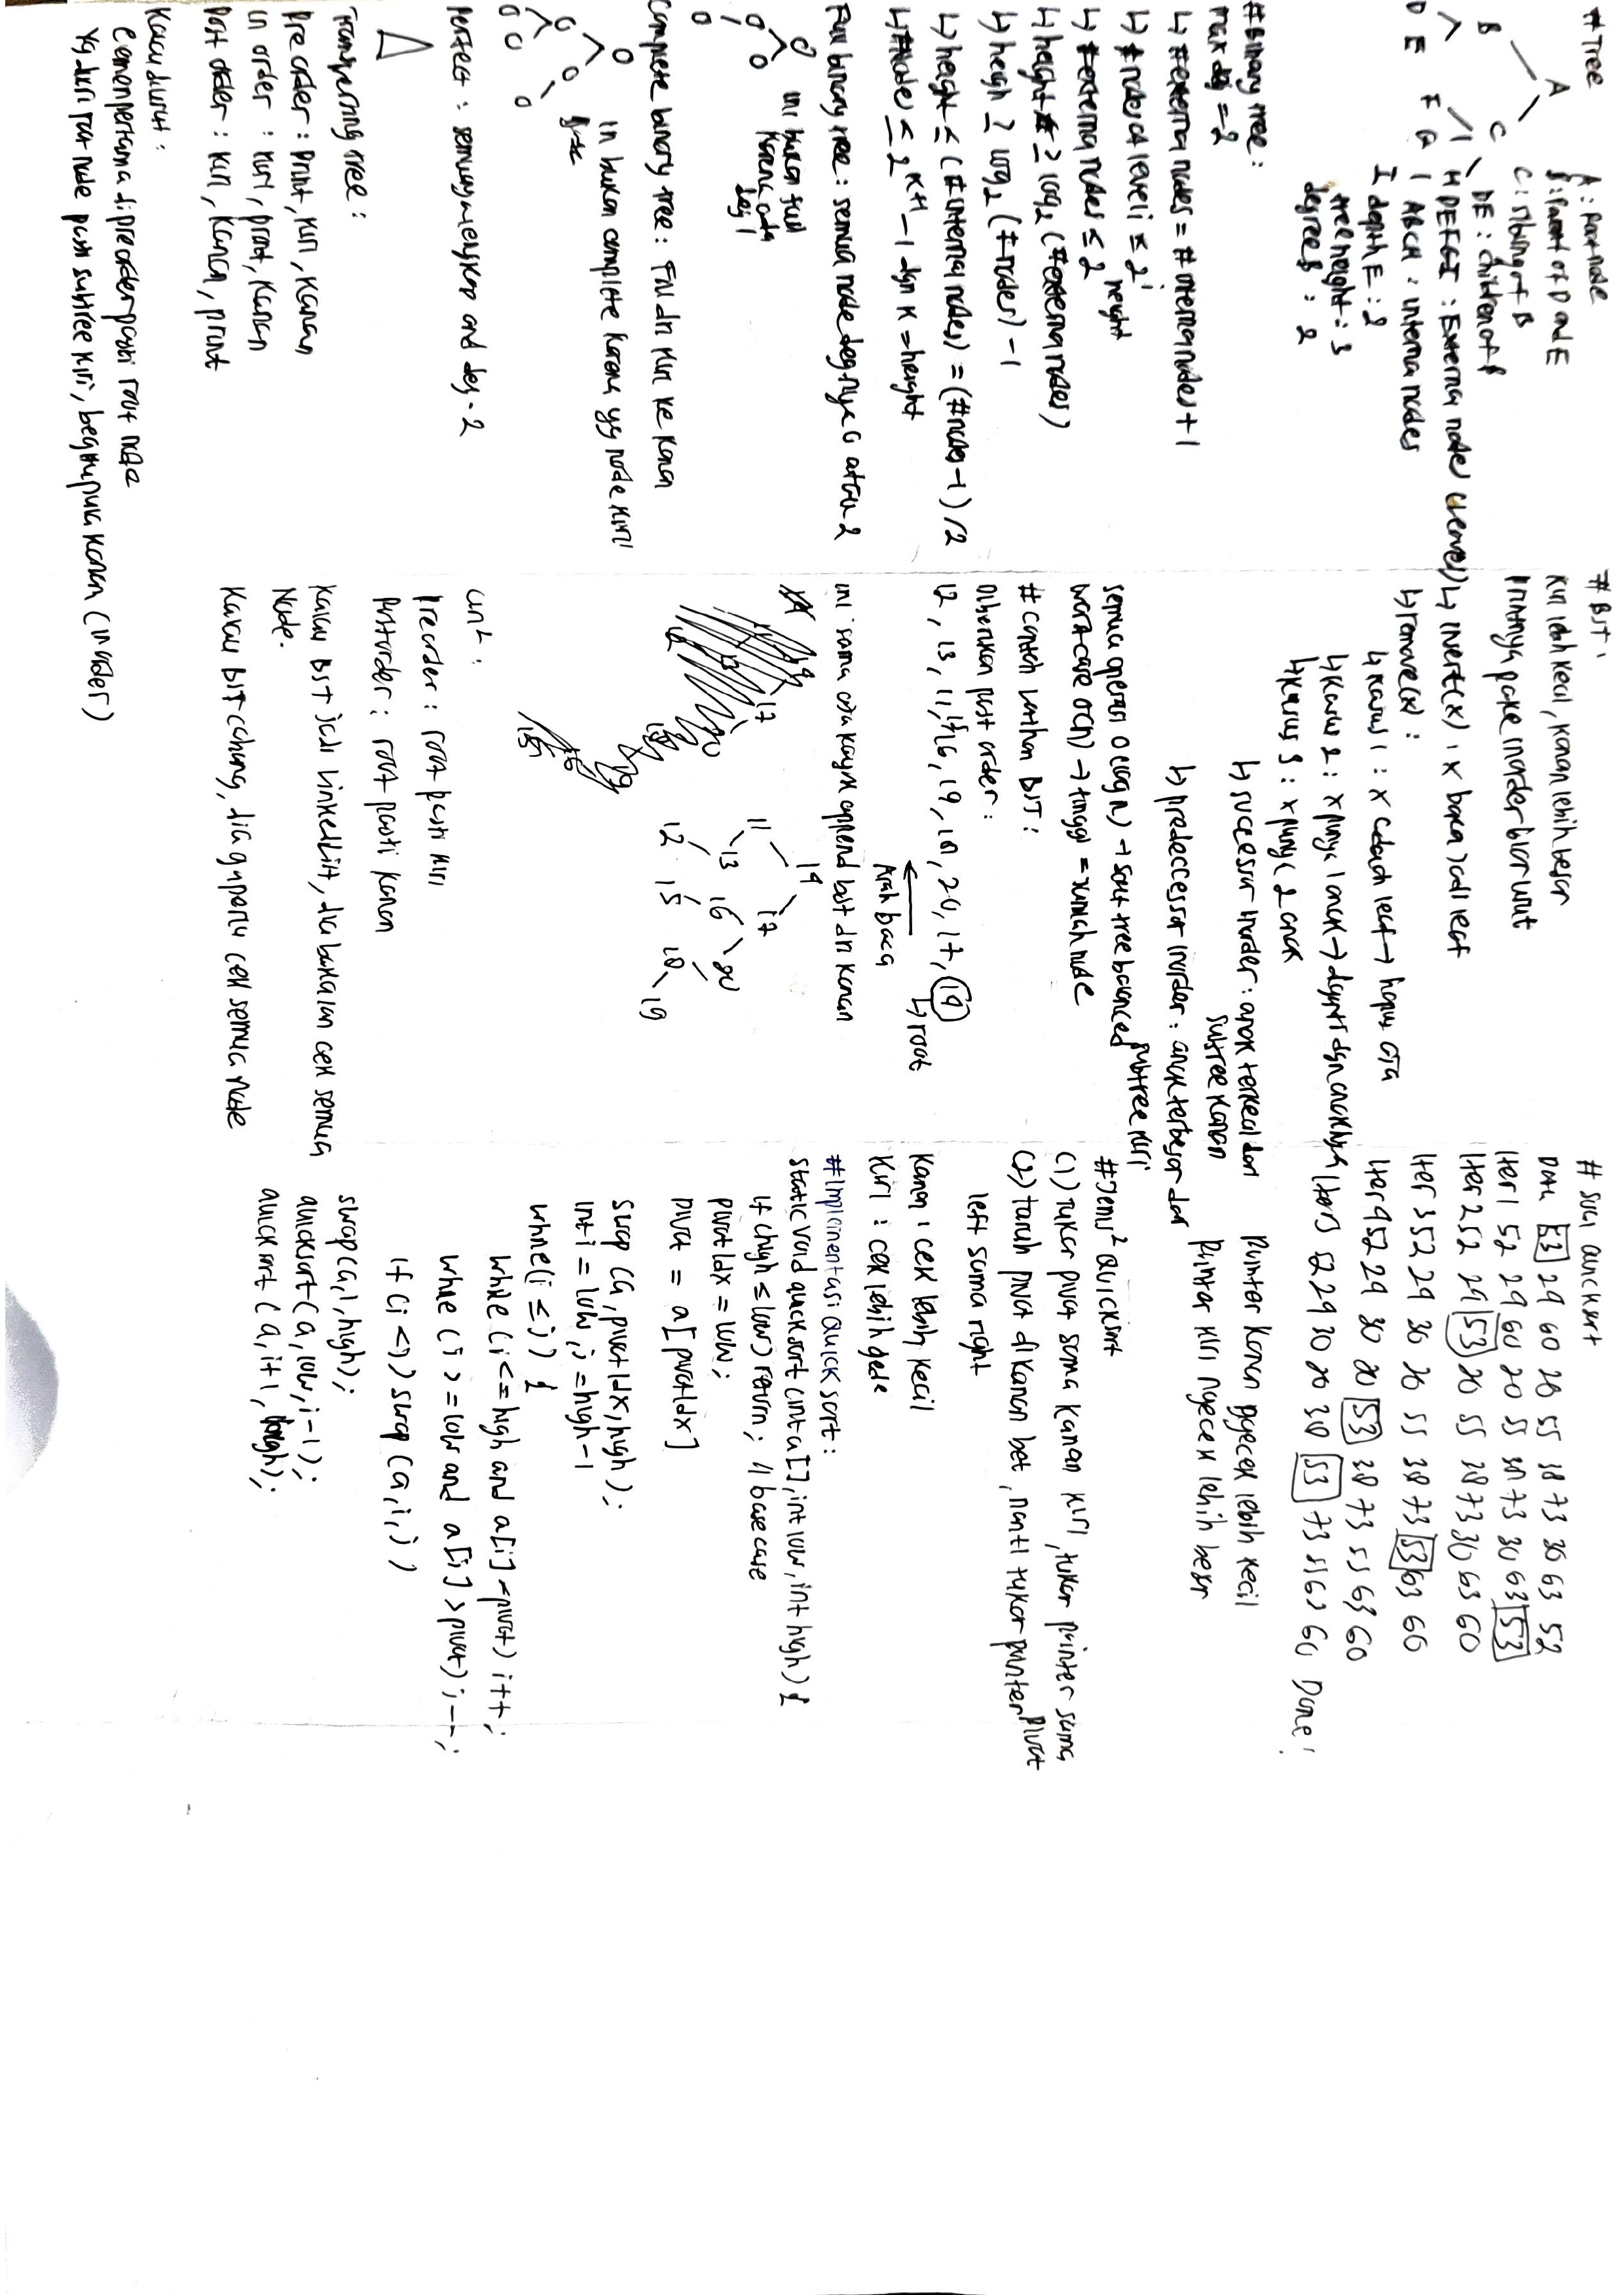 # Tree
A : root node
B : parent of D and E
C : sibling of B
DE : children of B
H DEFGI : External nodes (leaves)
ABCH : internal nodes
depth E : 2
tree height : 3
degree B : 2
A
B C
D E F G H
I
# Binary tree :
max deg = 2
↳ # external nodes = # internal nodes + 1
↳ # nodes at level i ≤ 2^i
↳ # external nodes ≤ 2^height
↳ height ≥ log2 (# external nodes)
↳ heigh ≥ log2 (# nodes) - 1
↳ height ≤ (# internal nodes) = (# nodes - 1) / 2
↳ # Node ≤ 2^k+1 - 1 dgn k = height
Full binary tree : semua node deg nya 0 atau 2
ini bukan full
karena ada
deg 1
Complete binary tree : Full dr kiri ke kanan
in bukan complete karena yg node kiri
Perfect : semuanya lengkap and deg = 2
Pre order : print, kiri, kanan
in order : kiri, print, kanan
Post order : kiri, kanan, print
Kalau diurut :
elemen pertama di preorder pasti root node
Yg dikiri root node pasti subtree kiri, begitupula kanan (inorder)
# BST :
kiri lebih kecil, kanan lebih besar
Printnya pake inorder biar urut
↳ insert(x) : x bakal jadi leaf
↳ remove(x) :
↳ kasus 1 : x adalah leaf → hapus aja
↳ kasus 2 : x punya 1 anak → diganti dgn anaknya
↳ kasus 3 : x punya 2 anak
↳ successor inorder : anak terkecil dari
subtree kanan
↳ predeccessor inorder : anak terbesar dari
subtree kiri
semua operasi O(log n) → saat tree balanced
worst case O(n) → tinggi = jumlah node
# contoh latihan BST :
Diberikan post order :
12, 13, 11, 15, 16, 19, 18, 20, 17, 14
↳ root
← Arah baca
ini sama aja kayak append bst dr kanan
14
11 17
13 16 20
12 15 18
19
Preorder : root pasti kiri
Postorder : root pasti kanan
Kalau BST jadi linkedlist, dia bakalan cek semua
Node.
Kalau BST cabang, dia gaperlu cek semua node
# Soal Quicksort
Data 53 29 60 20 55 38 73 30 63 52
Iter 1 52 29 60 20 55 38 73 30 63 53
Iter 2 52 29 53 20 55 38 73 30 63 60
Iter 3 52 29 30 20 55 38 73 53 63 60
Iter 4 52 29 30 20 53 38 73 55 63 60
Iter 5 52 29 30 20 38 53 73 55 63 60 Done!
Pointer kanan ngecek lebih kecil
Pointer kiri ngecek lebih besar
# Jenis² Quicksort
(1) Tuker pivot sama kanan kiri, tuker pointer sama
pivot
(2) taruh pivot di kanan bet, nanti tuker pointer
left sama right
Kanan : cek lebih kecil
Kiri : cek lebih gede
# Implementasi Quick sort :
static void quick sort (int a[], int low, int high) {
if (high ≤ low) return; // base case
pivotIdx = low;
pivot = a[pivotIdx]
swap (a, pivotIdx, high);
int i = low, j = high - 1
while (i ≤ j) {
while (i <= high and a[i] < pivot) i++;
while (j >= low and a[j] > pivot) j--;
if (i < j) swap (a, i, j)
swap(a, i, high);
quicksort (a, low, i-1);
quick sort (a, i+1, high);